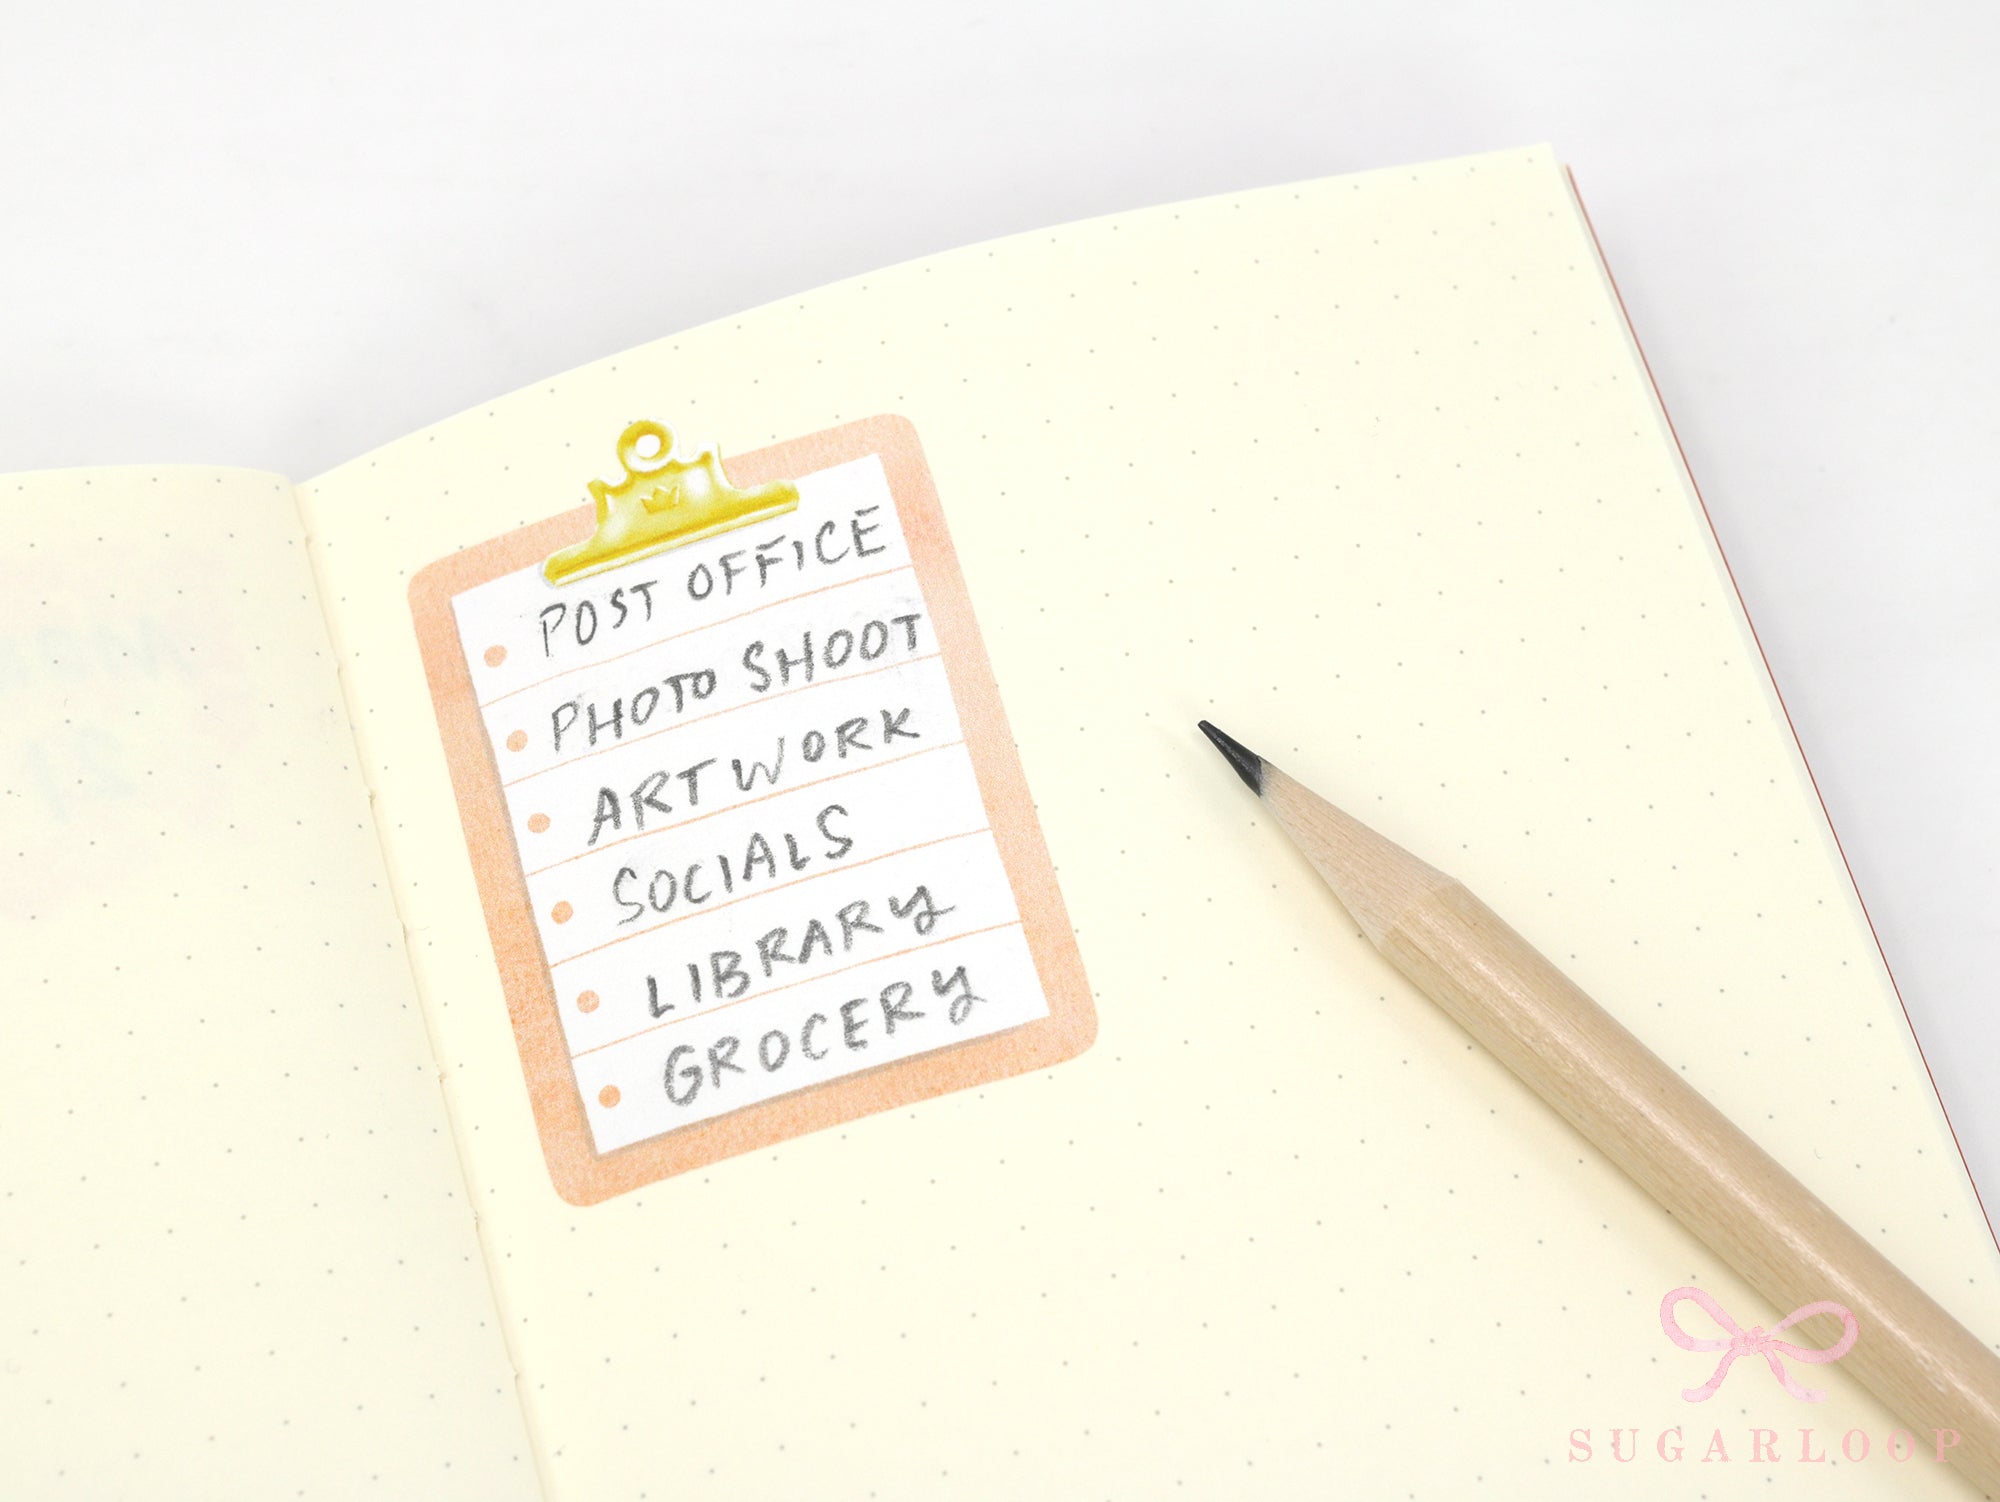 POST OFFICE
PHOTO SHOOT
ARTWORK
SOCIALS
LIBRARY
GROCERY
SUGARLOOP